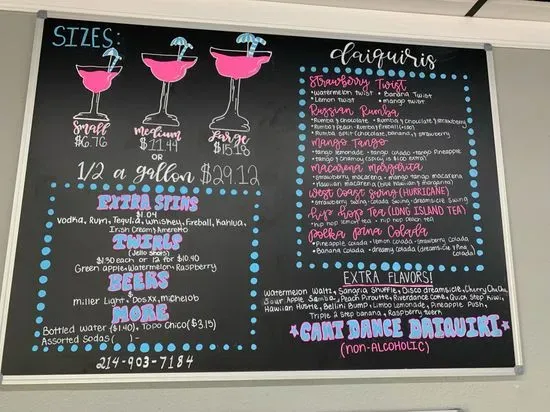 SIZES:
Small
$6.76
medium
$11.44
Large
$15.18
OR
1/2 a gallon $29.12
EXTRA SPINS
$1.04
Vodka, Rum, Tequila, Whiskey, Fireball, Kahlua,
Irish Cream, Amaretto
TWIRLS
(Jello Shots)
$1.30 each or 12 for $10.40
Green apple, Watermelon, Raspberry
BEERS
Miller Light, Dos XX, Michelob
MORE
Bottled Water ($1.40), Topo Chico ($3.15)
Assorted Sodas ( ) -
214-903-7184
daiquiris
Strawberry Twist
• Watermelon Twist • Banana Twist
• Lemon twist • mango twist
Russian Rumba
• Rumba y chocolate • Rumba y chocolate y strawberry
• Rumba y Peach • Rumba y Fireball
• Rumba Split (chocolate, banana, y strawberry)
mango Tango
• tango lemonade • tango colada • tango pineapple
• tango y chamoy (spicy is $1.00 extra)
macarena margarita
• strawberry macarena • mango tango macarena
• Hawaiian macarena (blue Hawaiian y margarita)
West Coast Swing (HURRICANE)
• strawberry swing • Colada Swing • dreamsicle Swing
hip hop Tea (LONG ISLAND TEA)
• hip hop lemon tea • hip hop peach tea
polka pina Colada
• Pineapple colada • Lemon colada • strawberry colada
• Banana colada • dreamy colada (dreamsicle y pina colada)
EXTRA FLAVORS!
Watermelon Waltz, Sangria Shuffle, Disco dreamsicle, Cherry Cha Cha,
Sour Apple Samba, Peach Pirouette, Riverdance Core, Quick Step Kiwi,
Hawaiian Hustle, Bellini Bump, Limbo Lemonade, Pineapple Push,
Triple 2 Step banana, Raspberry
* CAMI DANCE DAIQUIRI *
(NON-ALCOHOLIC)